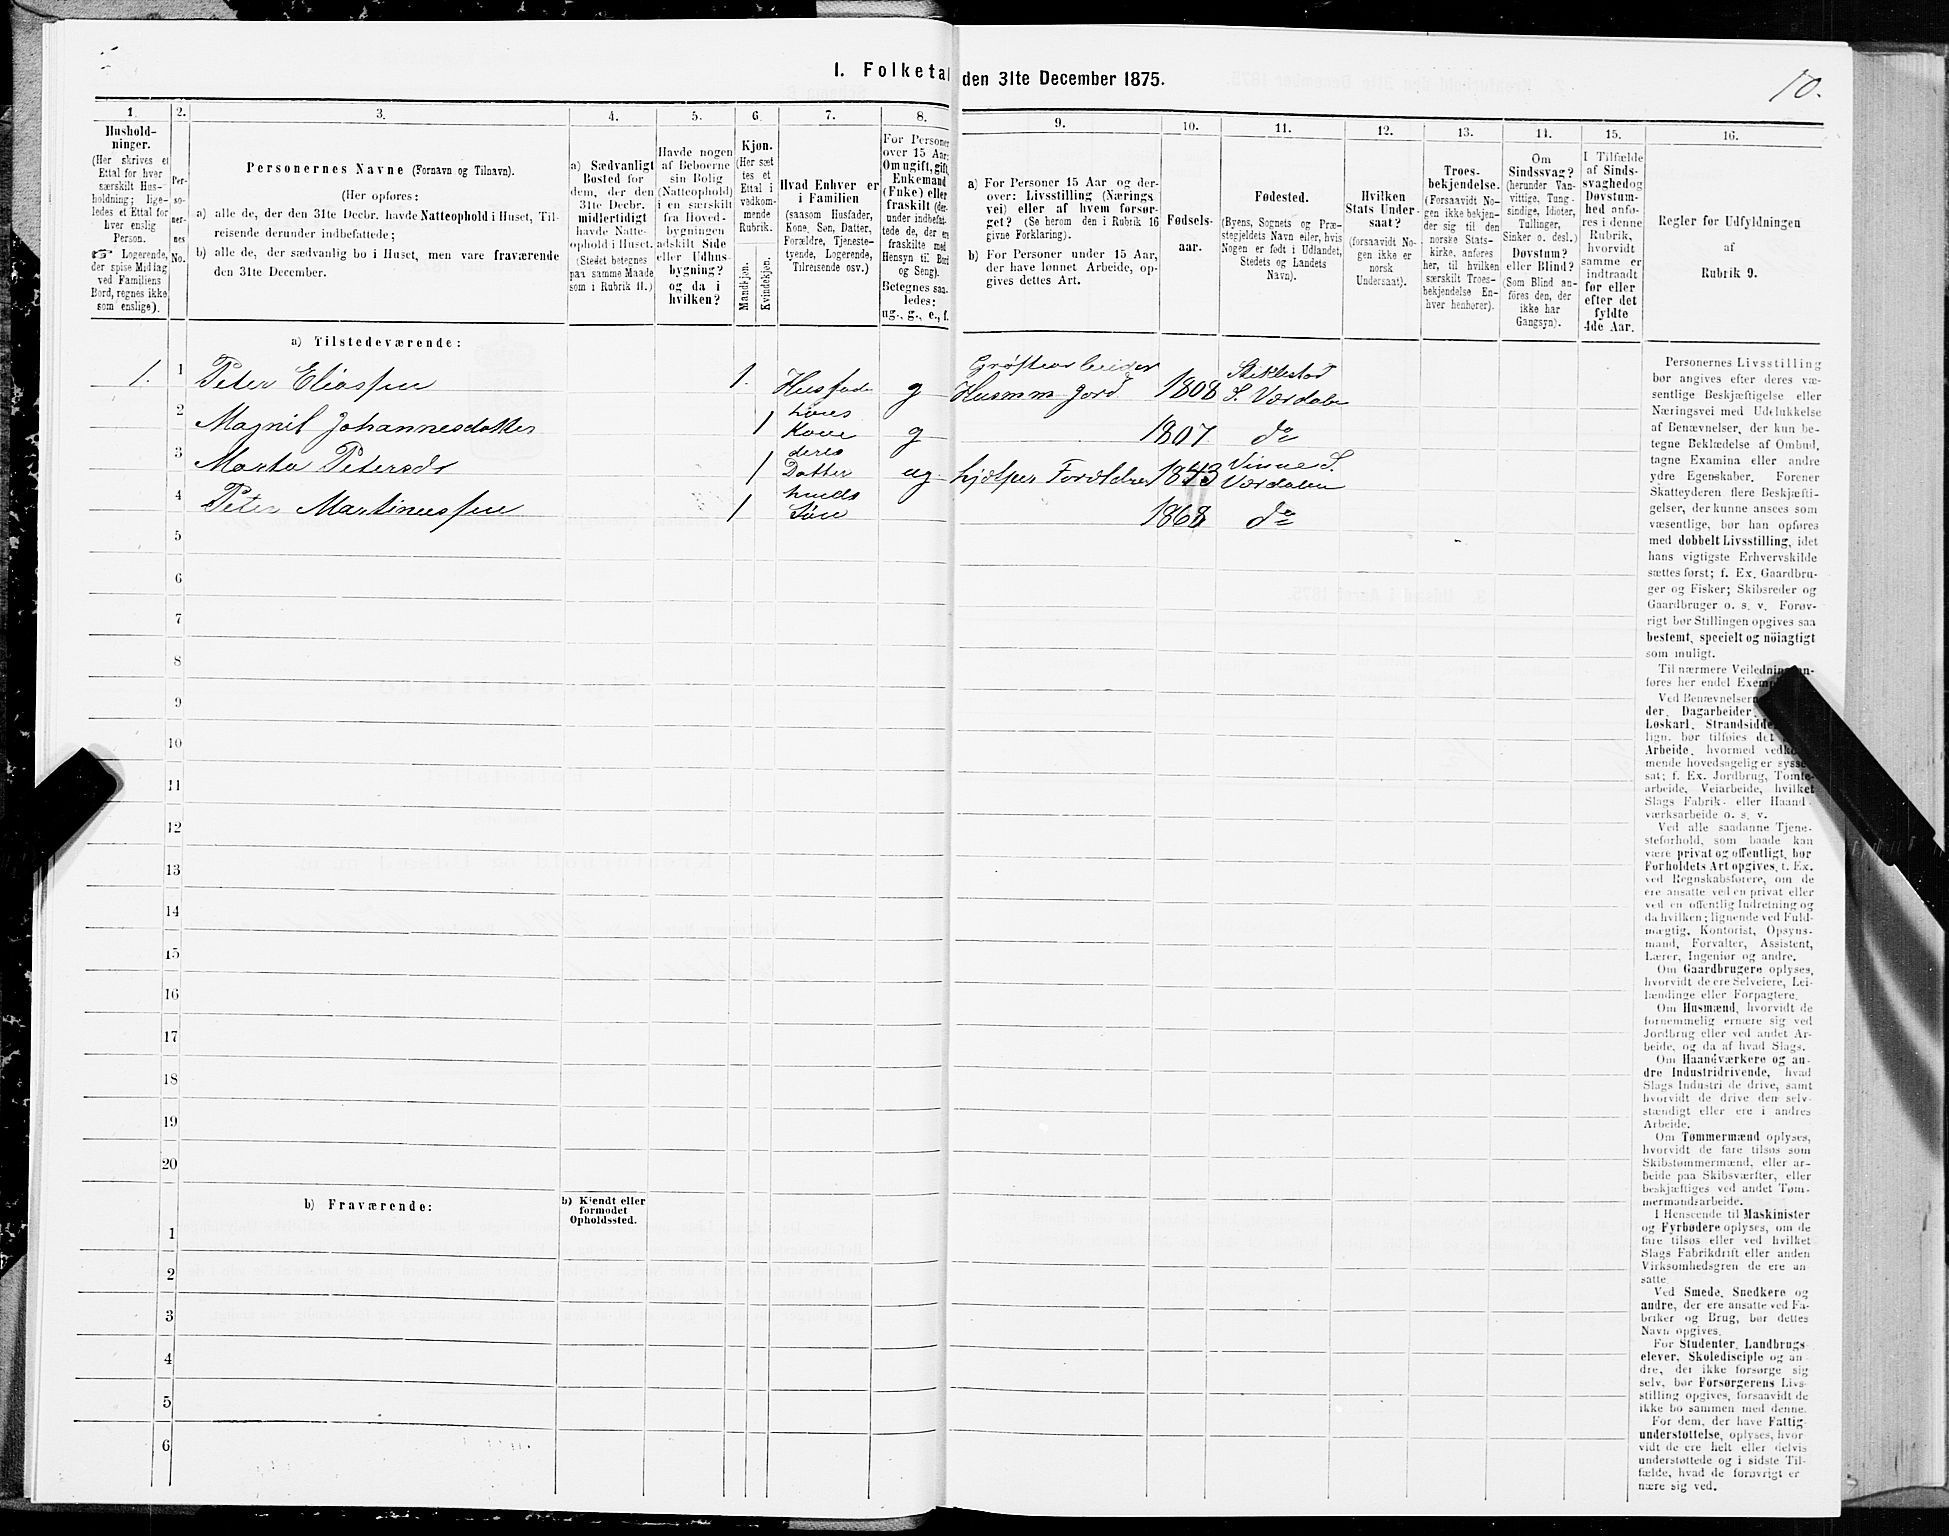 I. Folketal den 31te December 1875.
10.
1.
Hushold-
ninger.
(Her skrives et
Ettal for hver
særskilt Hus-
holdning; lige-
ledes et Ettal for
hver enslig
Person.
☞ Logerende,
der spise Middag
ved Familiens
Bord, regnes ikke
som enslige).
2.
Per-
so-
ner-
nes
No.
3.
Personernes Navne (Fornavn og Tilnavn).
(Her opføres:
a) alle de, der den 31te Decbr. havde Natteophold i Huset, Til-
reisende derunder indbefattede;
b) alle de, der sædvanlig bo i Huset, men vare fraværende
den 31te December.
4.
a) Sædvanligt
Bosted for
dem, der den
31te Decbr.
midlertidigt
havde Natte-
ophold i Huset.
(Stedet betegnes
paa samme Maade
som i Rubrik 11.)
5.
Havde nogen
af Beboerne
sin Bolig
(Natteophold)
i en særskilt
fra Hoved-
bygningen
adskilt Side
eller Udhus-
bygning?
og da i
hvilken?
6.
Kjøn.
(Her sæt
tes et
Ettal i
vedkom-
mende
Rubrik.
Mandkjøn.
Kvindekjøn.
7.
Hvad Enhver er
i Familien
(saasom Husfader,
Kone, Søn, Datter,
Forældre, Tjeneste-
tyende, Logerende,
Tilreisende osv.)
8.
For Personer
over 15 Aar:
Om ugift, gift,
Enkemand
(Enke) eller
fraskilt (der-
under indbefat-
tede de, der ere
fraskilte med
Hensyn til Bord
og Seng).
Betegnes saa-
ledes:
ug., g., e., f.
9.
a) For Personer 15 Aar og der-
over: Livsstilling (Nærings
vei) eller af hvem forsør-
get? (Se herom den i Rubrik 16
givne Forklaring).
b) For Personer under 15 Aar,
der have lønnet Arbeide, op-
gives dettes Art.
10.
Fødsels-
aar.
11.
Fødested.
(Byens, Sognets og Præ-
stegjeldets Navn eller, hvis
Nogen er født i Udlandet,
Stedets og Landets
Navn).
12.
Hvilken
Stats Under-
saat?
(forsaavidt No-
gen ikke er
norsk
Undersaat).
13.
Troes-
bekjendelse.
(Forsaavidt No-
gen ikke bekjen-
der sig til den
norske Stats-
kirke, anføres
her, til hvilken
særskilt Troes-
bekjendelse En-
hver henhører).
14.
Om
Sindssvag?
(herunder Van-
vittige, Tung-
sindige, Idioter,
Tullinger,
Sinker o. desl.)
Døvstum?
eller Blind?
(Som Blind an-
føres den, der
ikke har
Gangsyn).
15.
I Tilfælde
af Sinds-
svaghed og
Døvstum-
hed anfø-
res i denne
Rubrik,
hvorvidt
samme er
indtraadt
før eller
efter det
fyldte
4de Aar.
16.
Regler for Udfyldningen
af
Rubrik 9.
a) Tilstedeværende:
1. 1 Peter Eliassen 1. Husfader g Grøftearbeider Husmm Jord 1808 Stiklestad S. Værdalen
2 Magnil Johannesdatter 1 hans Kone g 1807 do
3 Marta Petersdr 1 deres Datter ug hjælper Forældre 1843 Vinne S. Værdalen
4 Peter Martinussen 1 hendes Søn 1868 do
5
6
7
8
9
10
11
12
13
14
15
16
17
18
19
20
b) Fraværende:
b) Kjendt eller
formodet
Opholdssted.
1
2
3
4
5
6
Personernes Livsstilling
bør angives efter deres væ-
sentlige Beskjæftigelse eller
Næringsvei med Udelukkelse
af Benævnelser, der kun be-
tegne Beklædelse af Ombud,
tagne Examina eller andre
ydre Egenskaber. Forener
Skatteyderen flere Beskjæfti-
gelser, der kunne ansees som
væsentlige, bør han opføres
med dobbelt Livsstilling, idet
hans vigtigste Erhvervskilde
sættes først; f. Ex. Gaardbru-
ger og Fisker; Skibsreder og
Gaardbruger o. s. v. Forøv-
rigt bør Stillingen opgives saa
bestemt, specielt og nöiagtigt
som muligt.
Til nærmere Veiledning an-
føres her endel Exempler
Ved Benævnelserne
der, Dagarbeider,
Løskarl, Strandsidde
lign. bør tilføies det
Arbeide, hvormed vedkom-
mende hovedsagelig er syssel-
sat; f. Ex. Jordbrug, Tomte-
arbeide, Veiarbeide, hvilket
Slags Fabrik- eller Haand-
værksarbeide o. s. v.
Ved alle saadanne Tjene-
steforhold, som baade kan
være privat og offentligt, bør
Forholdets Art opgives, f. Ex.
ved Regnskabsførere, om de
ere ansatte ved en privat eller
ved en offentlig Indretning og
da hvilken; lignende ved Fuld-
mægtig, Kontorist, Opsyns-
mand, Forvalter, Assistent,
Lærer, Ingeniør og andre.
Om Gaardbrugere oplyses,
hvorvidt de ere Selveiere, Lei-
lændinge eller Forpagtere.
Om Husmænd, hvorvidt de
fornemmelig ernære sig ved
Jordbrug eller ved andet Ar-
beide, og da af hvad Slags.
Om Haandværkere og an-
dre Industridrivende, hvad
Slags Industri de drive, samt
hvorvidt de drive den selv-
stændigt eller ere i andres
Arbeide.
Om Tømmermænd oplyses,
hvorvidt de fare tilsøs som
Skibstømmermænd, eller ar-
beide paa Skibsværfter, eller
beskjæftiges ved andet Tøm-
mermandsarbeide.
I Henseende til Maskinister
og Fyrbødere oplyses, om de
fare tilsøs eller ved hvilket
Slags Fabrikdrift eller anden
Virksomhedsgren de ere an-
satte.
Ved Smede, Snedkere og
andre, der ere ansatte ved Fa-
briker og Brug, bør dettes
Navn opgives.
For Studenter, Landbrugs-
elever, Skoledisciple og an-
dre, der ikke forsørge sig
selv, bør Forsørgerens Livs-
stilling opgives, forsaavidt de
ikke bo sammen med denne.
For dem, der have Fattig-
understøttelse, oplyses, hvor
vidt de ere helt eller delvis
understøttede og i sidste Til-
fælde, hvad de forøvrigt er
nære sig ved.